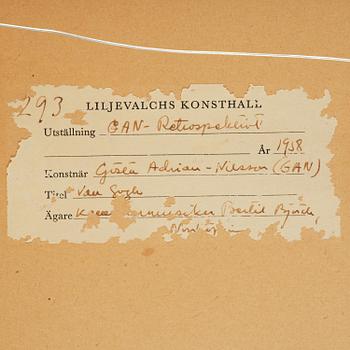 293
LILJEVALCHS KONSTHALL
Utställning GAN-Retrospektivt
År 1958
Konstnär Gösta Adrian-Nilsson (GAN)
Titel Van Gogh
Ägare Bertil